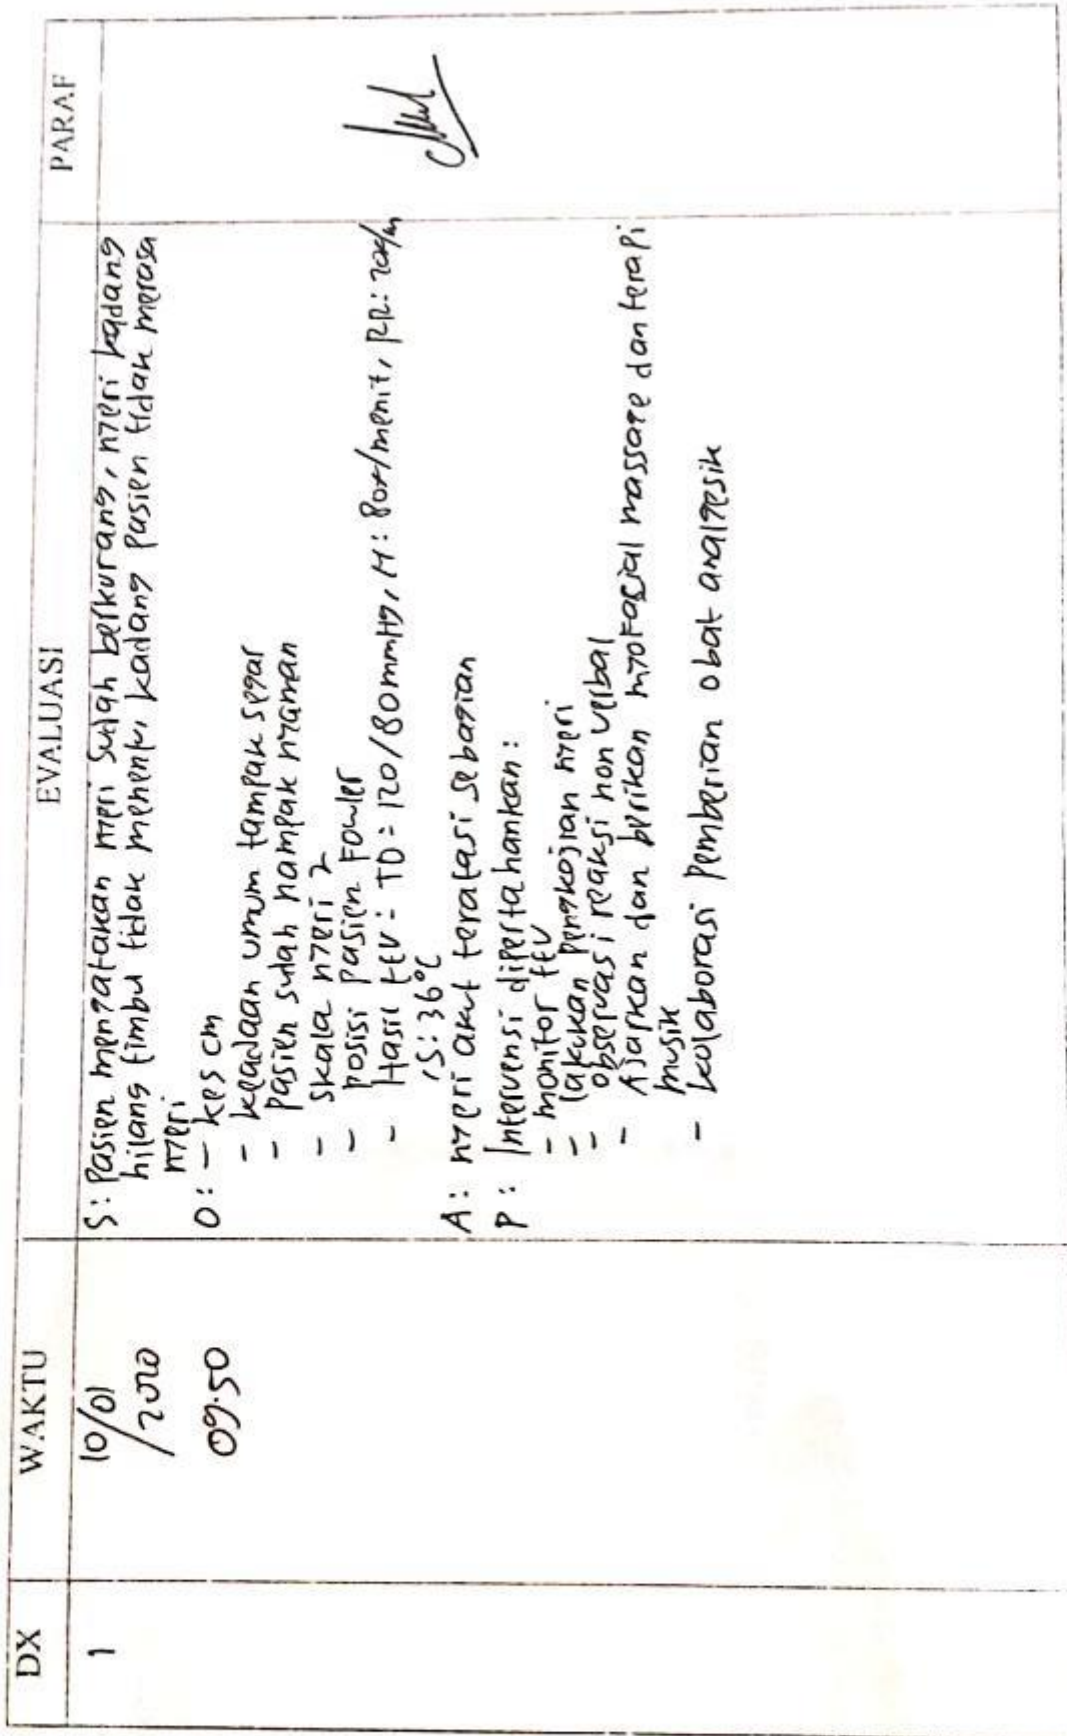 DX WAKTU EVALUASI PARAF
1
10/01
/2020
09.50
S: Pasien mengatakan nyeri sudah berkurang, nyeri kadang
hilang timbul tidak menentu, kadang pasien tidak merasa
nyeri
O: - kes cm
- keadaan umum tampak segar
- pasien sudah nampak nyaman
- skala nyeri 2
- posisi pasien Fowler
- Hasil ttv = TD = 120/80mmHg, N: 80x/menit, RR: 20x/m
, S: 36°C
A: nyeri akut teratasi sebagian
P: Intervensi dipertahankan:
- monitor ttv
- lakukan pengkajian nyeri
- observasi reaksi non verbal
- Ajarkan dan berikan myofascial massage dan terapi
musik
- kolaborasi pemberian obat analgesik